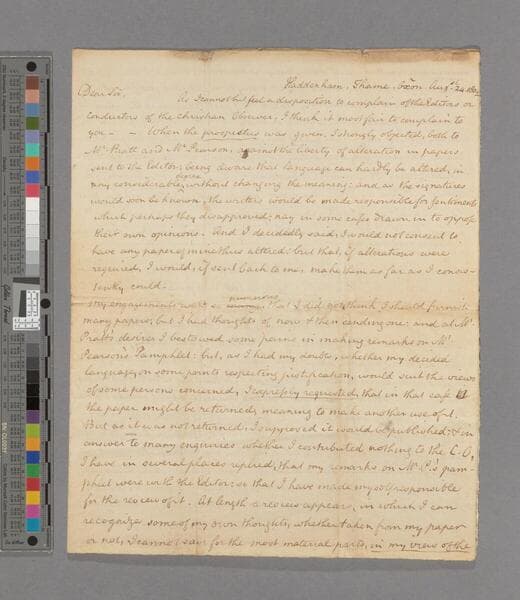 Haddenham, Thame, Oxon Augst. 24. 1802
Dear Sir,
As I cannot but feel a disposition to complain of the Editors or
conductors of the Christian Observer, I think it most fair to complain to
you — — When the prospectus was given, I strongly objected, both to
Mr. Pratt and Mr. Pearson, against the liberty of alteration in papers
sent to the Editor: being aware that language can hardly be altered, in
any considerable degree, without changing the meaning: and as the signatures
would soon be known, the writers would be made responsible for sentiments
which perhaps they disapproved; nay in some cases drawn in to oppose
their own opinions. And I decidedly said, I would not consent to
have any paper of mine thus altered: but that, if alterations were
required, I would, if sent back to me, make them as far as I consis-
tently could.
My engagements were so numerous that I did not think I should furnish
many papers; but I had thoughts of now & then sending one: and at Mr.
Pratt's desire I bestowed some pains in making remarks on Mr.
Pearson's Pamphlet: but, as I had my doubts, whether my decided
language, on some points respecting justification, would suit the views
of some persons concerned, I expressly requested, that in that case
the paper might be returned, meaning to make another use of it.
But as it was not returned, I supposed it would be published; & in
answer to many enquiries whether I contributed nothing to the C. O,
I have in several places replied, that my remarks on Mr. P.'s pam-
phlet were with the Editor: so that I have made myself responsible
for the review of it. At length a review appears, in which I can
recognize some of my own thoughts, whether taken from my paper
or not, I cannot say: for the most material parts, in my view of the